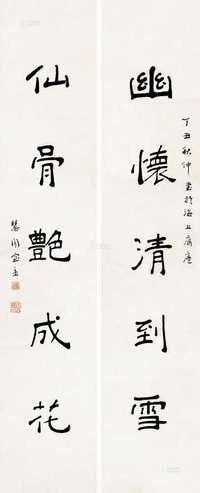 幽懷清到雪
丁丑秋仲書於海上寓廬
仙骨艷成花